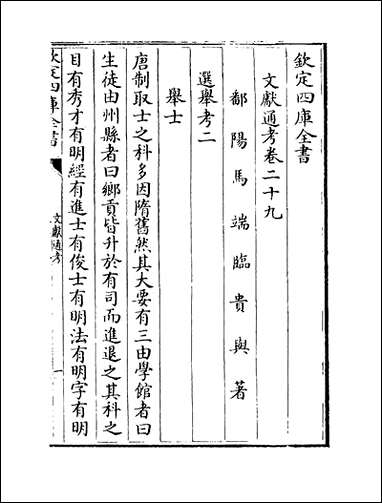 欽定四庫全書
文獻通考卷二十九
鄱陽馬端臨貴與著
選舉考二
舉士
唐制取士之科多因隋舊然其大要有三由學館者曰
生徒由州縣者曰鄉貢皆升於有司而進退之其科之
目有秀才有明經有進士有俊士有明法有明字有明
欽定四庫全書
文獻通考
一